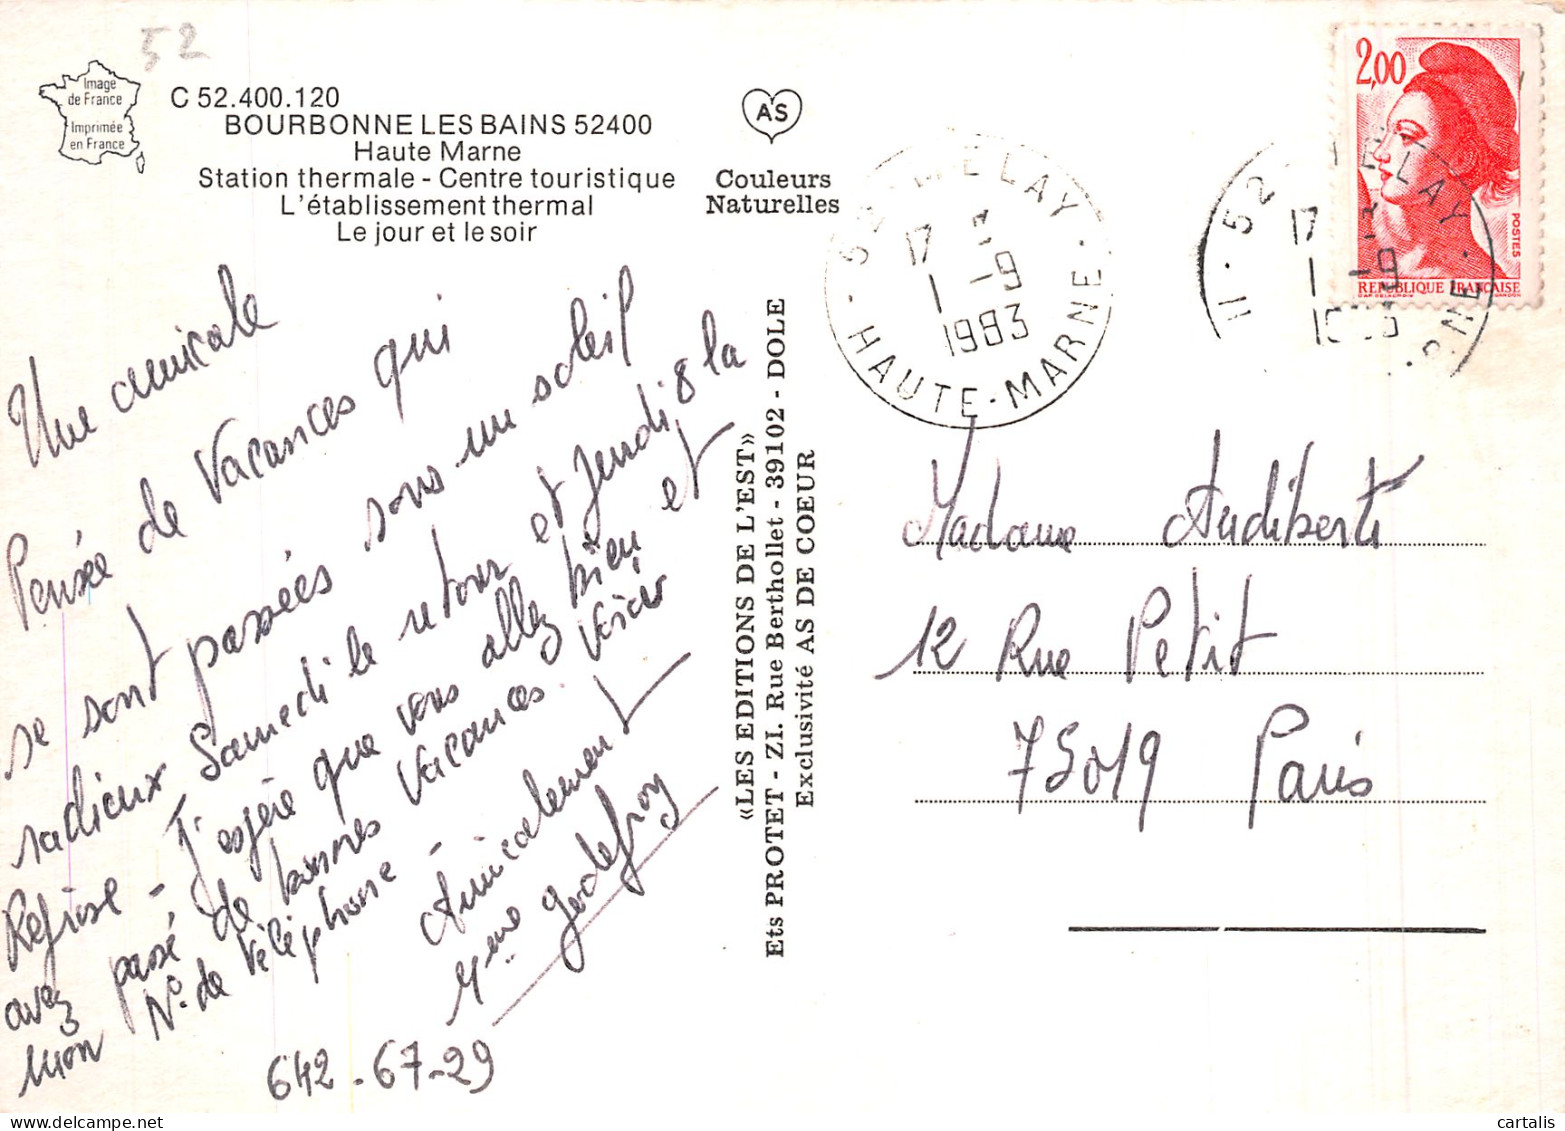 52
Image
de France
Imprimée
en France
C 52.400.120
BOURBONNE LES BAINS 52400
Haute Marne
Station thermale - Centre touristique
L'établissement thermal
Le jour et le soir
AS
Couleurs
Naturelles
Une amicale
Pensée de Vacances qui
se sont passées sous un soleil
radieux Samedi le retour et Jeudi 8 la
Reprise - J'espère que vous allez bien et
avez passé de bonnes Vacances. Voici
mon N° de Téléphone -
Amicalement
Mme Godefroy
642-67-29
«LES EDITIONS DE L'EST»
Ets PROTET - ZI. Rue Berthollet - 39102 - DOLE
Exclusivité AS DE COEUR
MELAY
17
1 -9
1983
HAUTE-MARNE
2,00
POSTES
REPUBLIQUE FRANÇAISE
11 · 52
LAY
17
1 -9
Madame Audiberti
12 Rue Petit
75019 Paris
cartalis